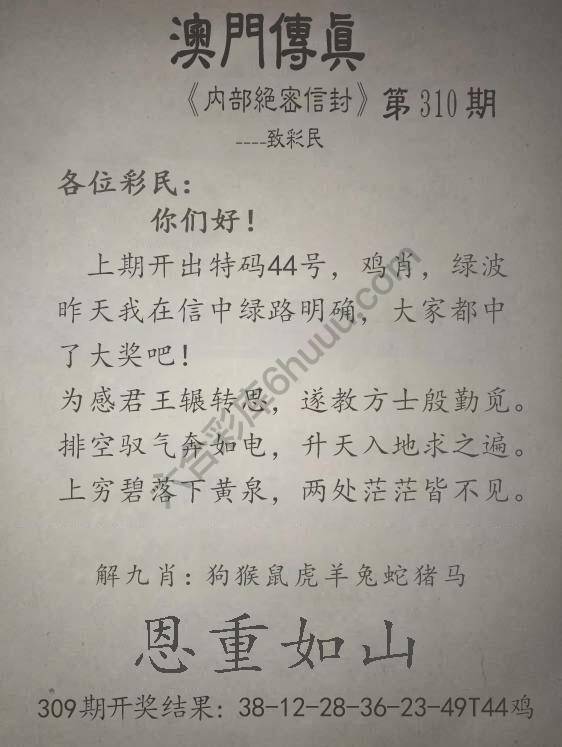 澳門傳眞
《内部絕密信封》第310期
----致彩民
各位彩民：
你们好！
上期开出特码44号，鸡肖，绿波
昨天我在信中绿路明确，大家都中
了大奖吧！
为感君王辗转思，遂教方士殷勤觅。
排空驭气奔如电，升天入地求之遍。
上穷碧落下黄泉，两处茫茫皆不见。
解九肖：狗猴鼠虎羊兔蛇猪马
恩重如山
309期开奖结果：38-12-28-36-23-49T44鸡
六合彩库6huuu.com